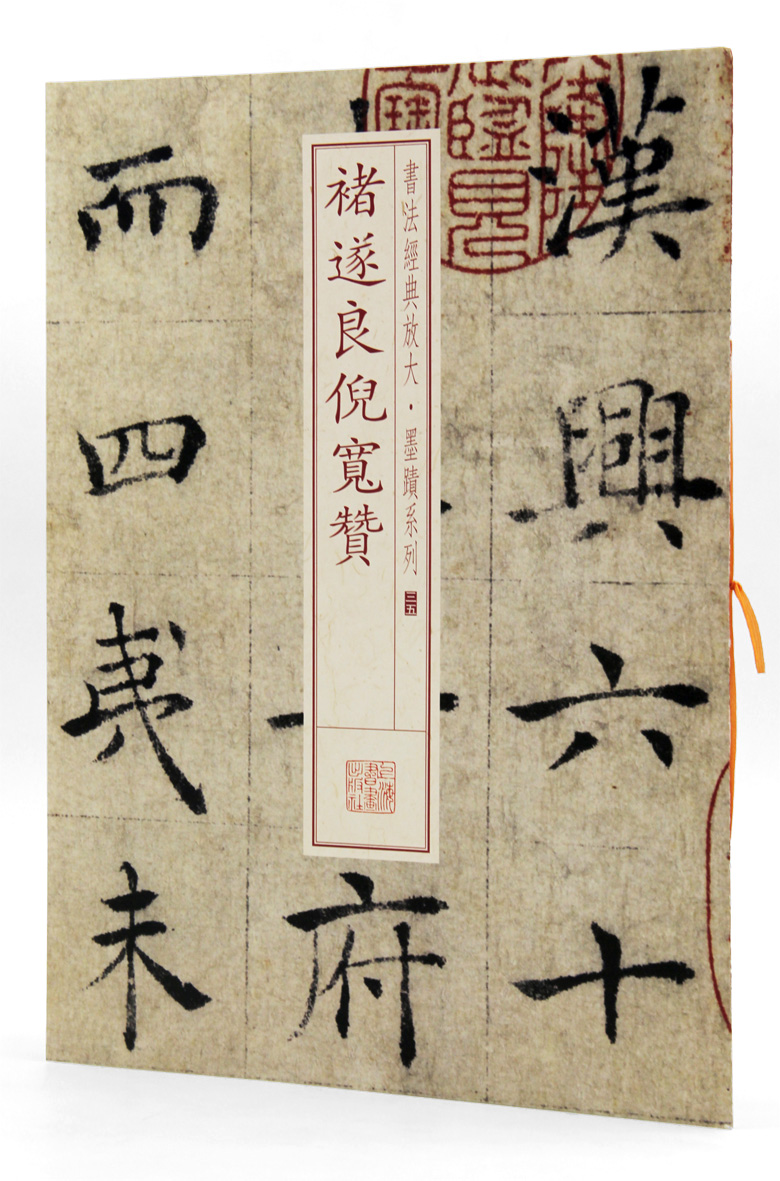 漢興六十
府
而四夷未
書法經典放大・墨蹟系列
三五
褚遂良倪寬贊
上海書畫出版社